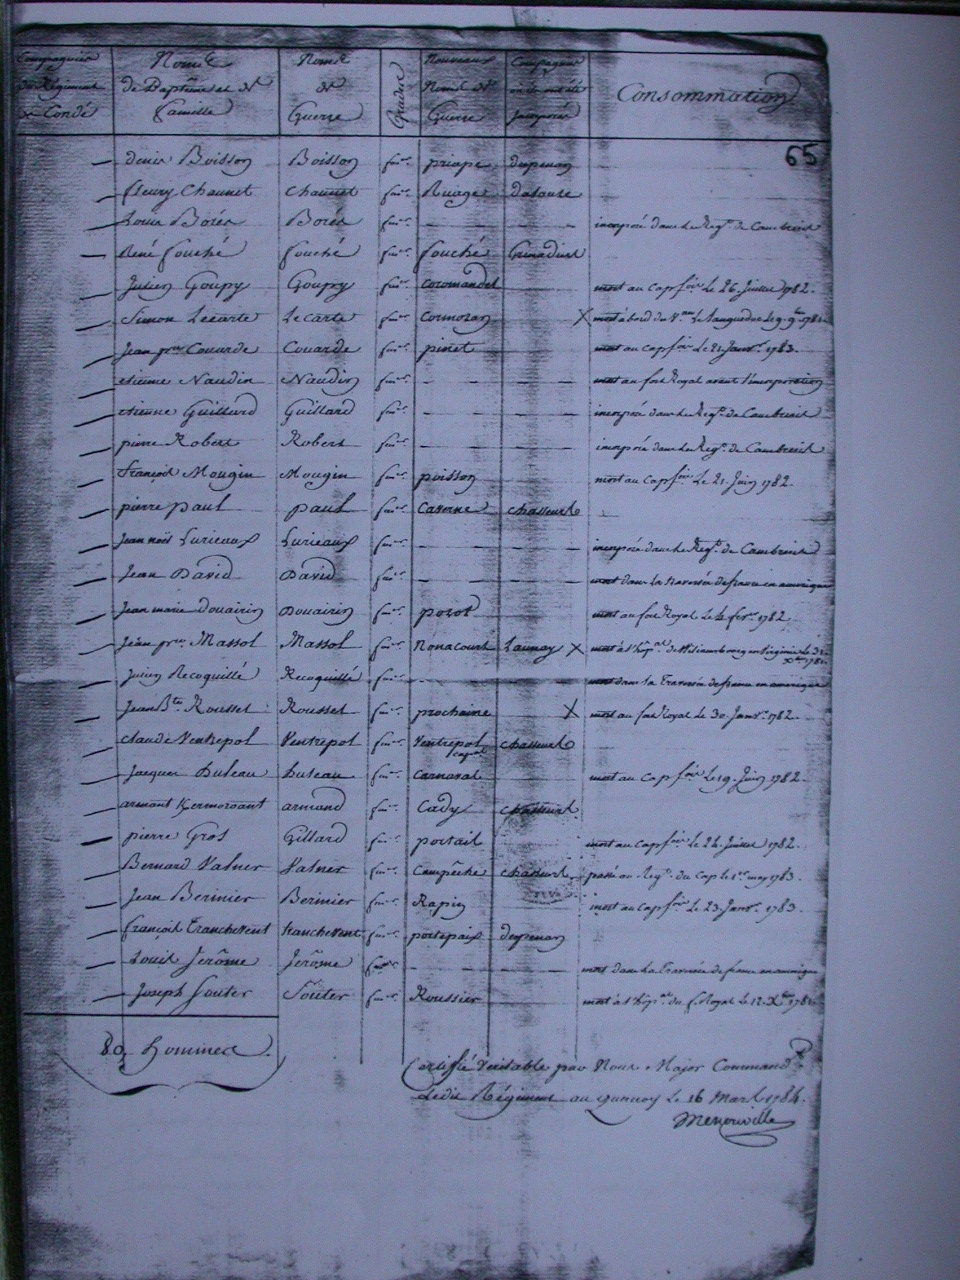 Compagnies du Régiment de Condé
Noms de Baptême et de famille
Noms de Guerre
Grades
Nouveaux Noms de Guerre
Compagnies où ils ont été Incorporés
Consommation
65
denis Boisson Boisson fus.er priape despenan
fleury Chaunet Chaunet fus.er Ruage
Louis Borés Borés fus.er — — incorporé dans le Reg.t de Cambresis
René fouché fouché fus.er fouché Grenadiers
Julien Goupy Goupy fus.er coromandel mort au cap fois Le 26. Juillet 1782.
Simon Lecarte Le Carte fus.er Cormoran X mort à bord du V.au Le Languedoc Le 9. 9.bre 1782
Jean p.re Couarde Couarde fus.er pinet mort au cap fois Le 21. Janv.r 1783.
etienne Naudin Naudin fus.er — — mort au fort Royal avant l'incorporation
etienne Guillard Guillard fus.er — — incorporé dans le Reg.t de Cambresis
pierre Robert Robert fus.er — — incorporé dans le Reg.t de Cambresis
françois Mougin Mougin fus.er poisson mort au cap fois Le 21. Juin 1782.
pierre paul paul fus.er Caserne chasseurs
Jean noël Lurieaux Lurieaux fus.er — — incorporé dans le Reg.t de Cambresis
Jean David David fus.er — — mort dans la traversée de france en amerique
Jean marie Douairin Douairin fus.er porot mort au fort Royal Le 4 fev.er 1782
Jean p.re Massol Massol fus.er Nonacourt Launay X mort à l'hôp.al de Williamsbourg en Virginie Le 31 x.bre 1781
Julien Recoquillé Recoquillé fus.er — — mort dans la Traversée de france en amerique
Jean B.te Rousset Rousset fus.er prochaine X mort au fort Royal Le 30. Janv.r 1782.
claude Ventrepol Ventrepol fus.er Ventrepol chasseurs
caporal
Jacques Duleau Duleau fus.er Carnaval mort au cap fois Le 19. Juin 1782.
armant Kermorvant armand fus.er Cady chasseurs
pierre Gros Gillard fus.er portail mort au cap fois Le 24. Juillet 1782.
Bernard Vasner Vasner fus.er Campêche chasseurs passé au Reg.t du Cap le 1.er may 1783.
Jean Bernier Bernier fus.er Rapin mort au cap fois Le 23. Janv.r 1783.
françois Tranchevent tranchevent fus.er portepaix despenan
Louis Jerôme Jerôme fus.er — — mort dans la Traversée de france en amerique
Joseph Souter Souter fus.er Roussier mort à l'hôp.al du f. Royal Le 12. X.bre 1781
80, hommes.
Certifié Veritable par Nous Major Command.t
Ledit Régiment au quesnoy le 16 Mars 1784.
Menonville